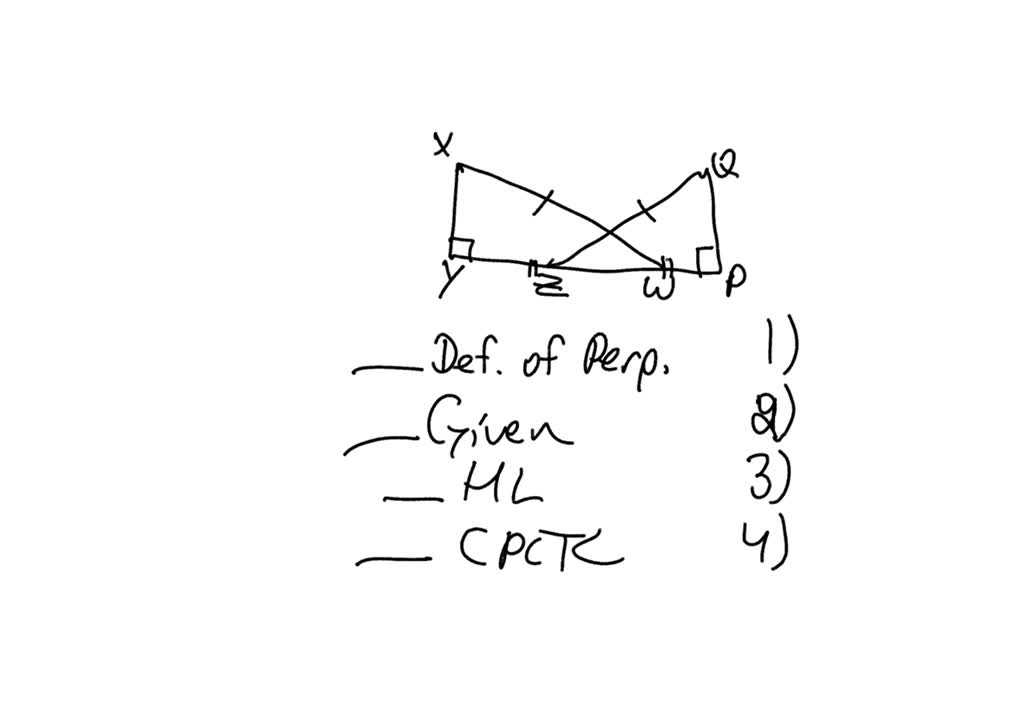 X Q
Y Z W P
___ Def. of Perp. 1)
___ Given 2)
___ HL 3)
___ CPCTC 4)